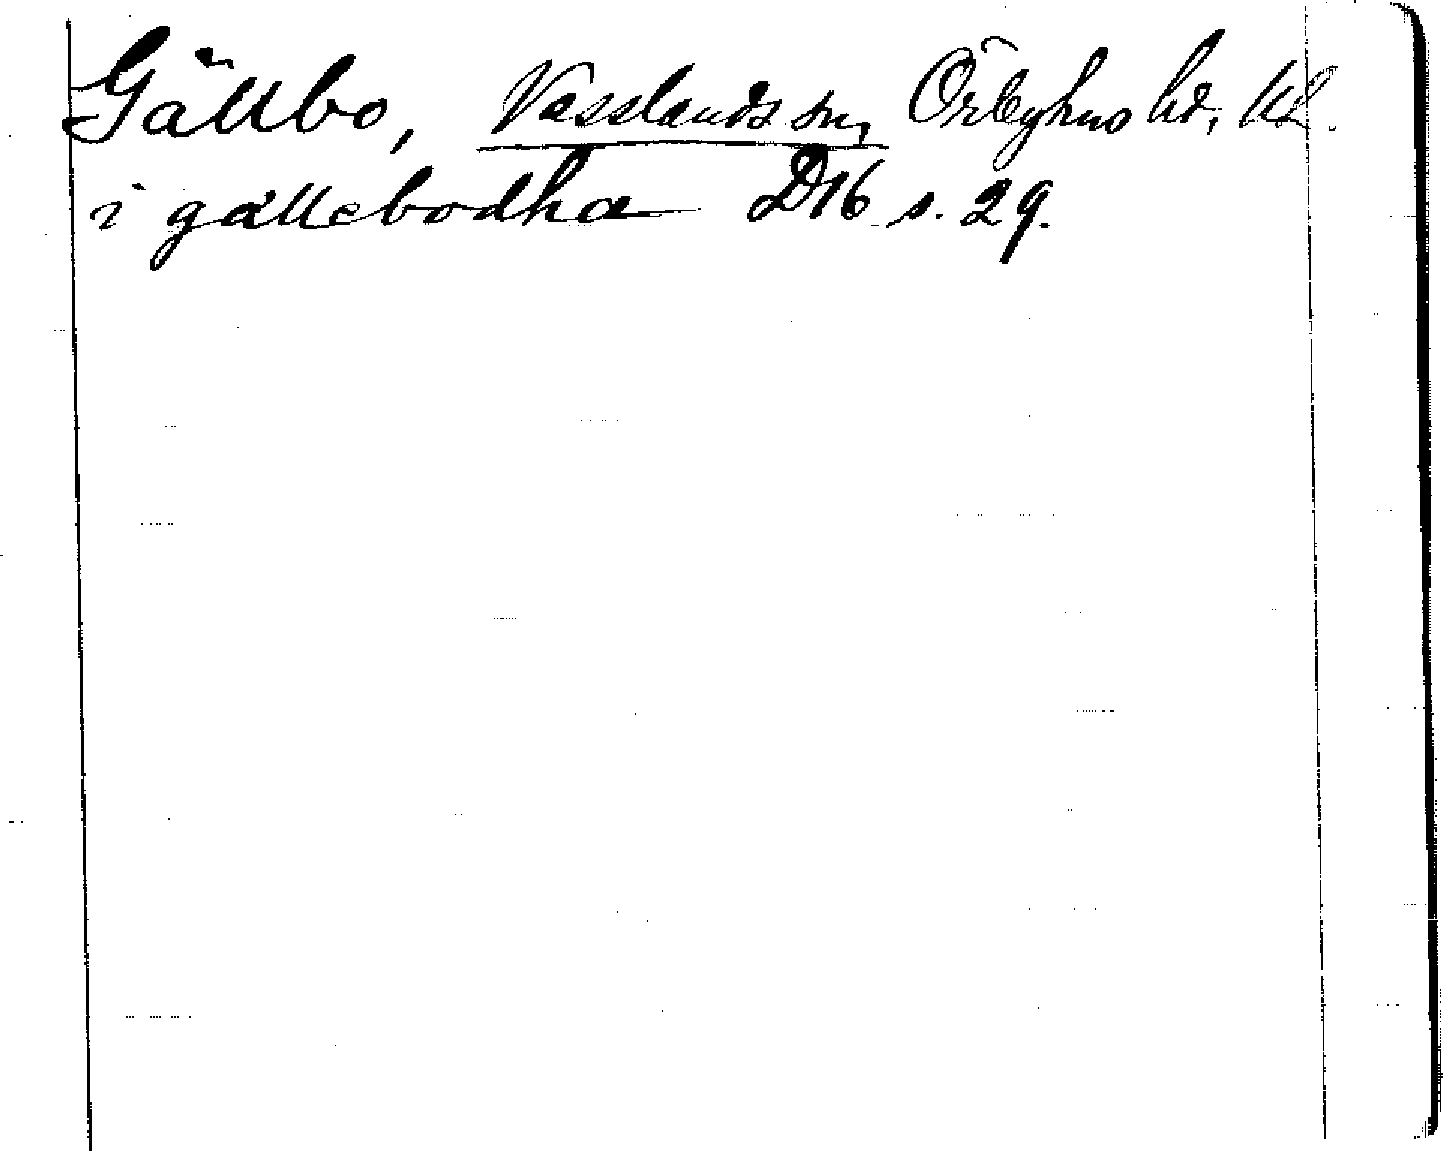 Gällbo, Vesslands sn, Örbyhus hd, Upl.
i gällebodha D16 s. 29.